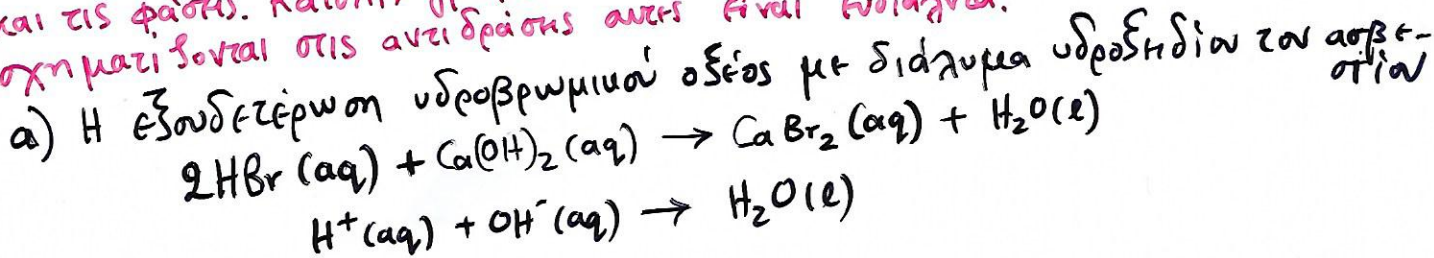 και τις φάσεις).
σχηματίζονται στις αντιδράσεις αυτές είναι ευδιάλυτα.
α) Η εξουδετέρωση υδροβρωμικού οξέος με διάλυμα υδροξειδίου του ασβε-
στίου
2HBr (aq) + Ca(OH)₂ (aq) → CaBr₂ (aq) + H₂O(l)
H⁺(aq) + OH⁻(aq) → H₂O(l)